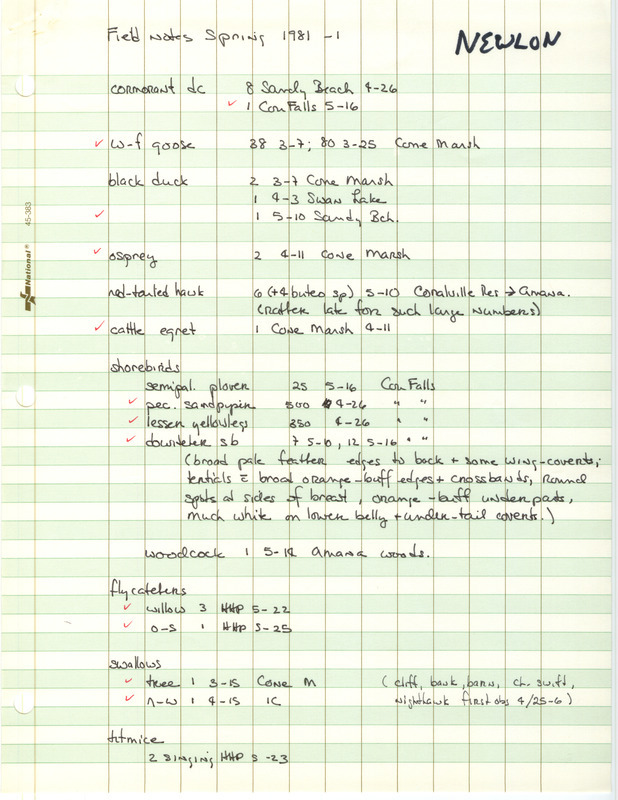 Field Notes Spring 1981 -1
NEWLON
cormorant dc 8 Sandy Beach 4-26
✓ 1 Con Falls 5-16
✓ w-f goose 38 3-7; 80 3-25 Cone Marsh
black duck 2 3-7 Cone Marsh
1 4-3 Swan Lake
✓ 1 5-10 Sandy Bch.
✓ osprey 2 4-11 Cone Marsh
red-tailed hawk 6 (+4 buteo sp) 5-10 Coralville Res → Amana.
(rather late for such large numbers)
✓ cattle egret 1 Cone Marsh 4-11
shorebirds
semipal. plover 25 5-16 Con Falls
✓ pec. sandpiper 500 4-26 " "
✓ lesser yellowlegs 350 4-26 " "
✓ dowitcher sb 7 5-10, 12 5-16 " "
(broad pale feather edges to back + some wing-coverts;
tertials c̄ broad orange-buff edges + crossbands, round
spots at sides of breast, orange-buff underparts,
much white on lower belly + under-tail coverts.)
woodcock 1 5-12 Amana woods.
flycatchers
✓ willow 3 HHP 5-22
✓ o-s 1 HHP 5-25
swallows
✓ tree 1 3-15 Cone M (cliff, bank, barn, ch. swift,
✓ r-w 1 4-15 IC nighthawk first obs 4/25-6)
titmice
2 singing HHP 5-23
National® 45-383